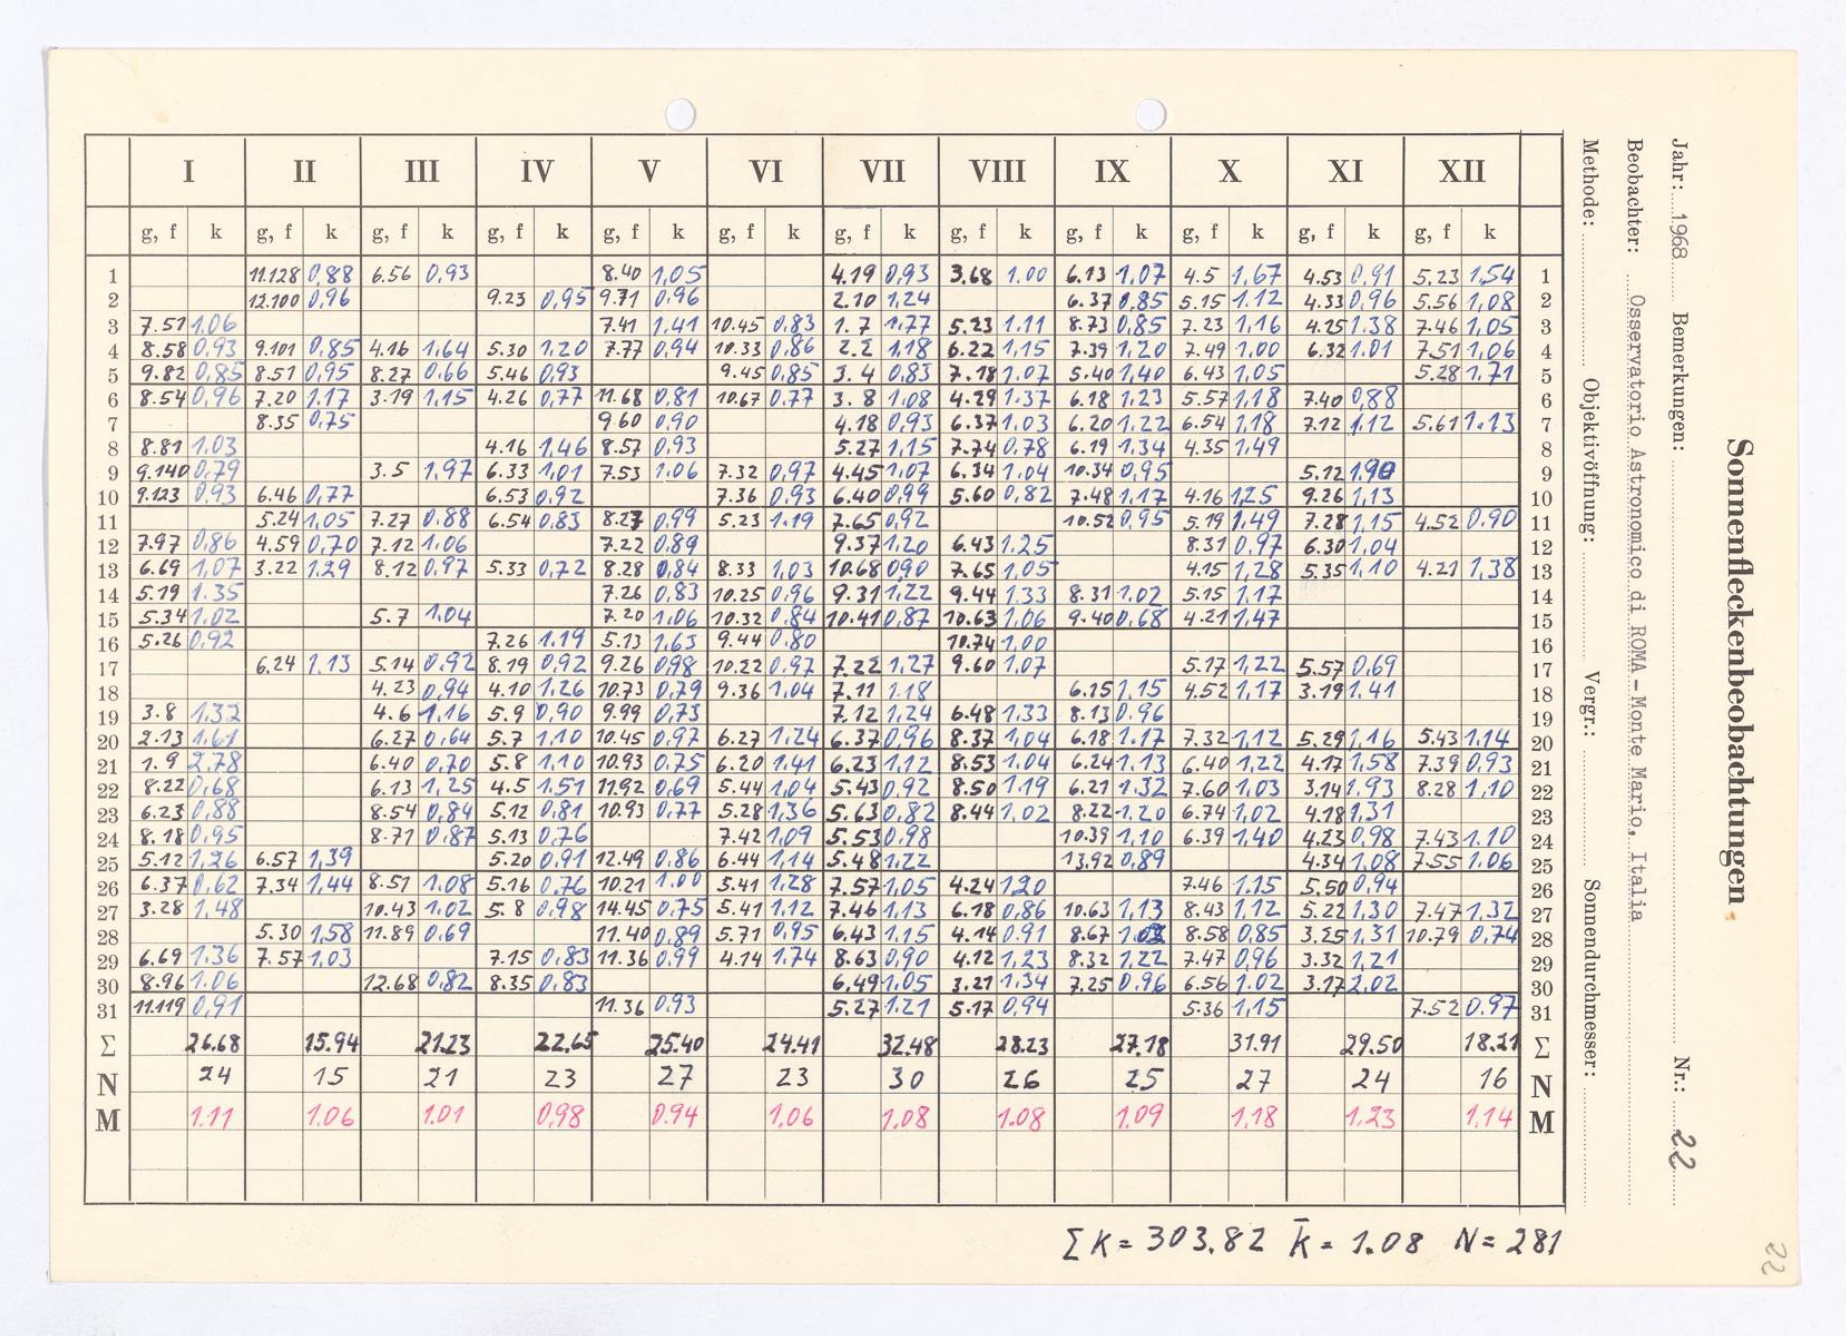 Sonnenfleckenbeobachtungen
Jahr: 1968 Bemerkungen: Nr.: 22
Beobachter: Osservatorio Astronomico di ROMA - Monte Mario, Italia
Methode: Objektivöffnung: Vergr.: Sonnendurchmesser:
I II III IV V VI VII VIII IX X XI XII
g, f k g, f k g, f k g, f k g, f k g, f k g, f k g, f k g, f k g, f k g, f k g, f k
1 11.128 0,88 6.56 0,93 8.40 1,05 4.19 0,93 3.68 1.00 6.13 1,07 4.5 1,67 4.53 0,91 5.23 1,54 1
2 12.100 0,96 9.23 0,95 9.71 0,96 2.10 1,24 6.37 0,85 5.15 1.12 4.33 0,96 5.56 1,08 2
3 7.51 1.06 7.41 1,41 10.45 0,83 1.7 1,77 5.23 1.11 8.73 0,85 7.23 1,16 4.25 1.38 7.46 1,05 3
4 8.58 0,93 9.101 0,85 4.16 1,64 5.30 1,20 7.77 0,94 10.33 0,86 2.2 1,18 6.22 1,15 7.39 1,20 7.49 1,00 6.32 1.01 7.51 1,06 4
5 9.82 0,85 8.51 0,95 8.27 0.66 5.46 0,93 9.45 0,85 3.4 0,83 7.18 1.07 5.40 1,40 6.43 1,05 5.28 1.71 5
6 8.54 0,96 7.20 1.17 3.19 1,15 4.26 0,77 11.68 0,81 10.67 0,77 3.8 1,08 4.29 1.37 6.18 1.23 5.57 1,18 7.40 0,88 6
7 8.35 0,75 9.60 0,90 4.18 0,93 6.37 1.03 6.20 1.22 6.54 1,18 7.12 1,12 5.61 1.13 7
8 8.81 1.03 4.16 1,46 8.57 0,93 5.27 1,15 7.74 0,78 6.19 1.34 4.35 1,49 8
9 9.140 0,79 3.5 1,97 6.33 1,01 7.53 1.06 7.32 0,97 4.45 1,07 6.34 1.04 10.34 0,95 5.12 1.90 9
10 9.123 0,93 6.46 0,77 6.53 0.92 7.36 0,93 6.40 0,99 5.60 0,82 7.48 1,17 4.16 1,25 9.26 1,13 10
11 5.24 1,05 7.27 0.88 6.54 0,83 8.27 0,99 5.23 1.19 7.65 0,92 10.52 0,95 5.19 1,49 7.28 1,15 4.52 0.90 11
12 7.97 0,86 4.59 0,70 7.12 1.06 7.22 0,89 9.37 1,20 6.43 1.25 8.31 0,97 6.30 1,04 12
13 6.69 1,07 3.22 1,29 8.12 0,97 5.33 0,72 8.28 0,84 8.33 1,03 10.68 0,90 7.65 1,05 4.15 1,28 5.35 1,10 4.21 1,38 13
14 5.19 1.35 7.26 0,83 10.25 0,96 9.31 1,22 9.44 1.33 8.31 1.02 5.15 1,17 14
15 5.34 1,02 5.7 1,04 7.20 1,06 10.32 0,84 10.41 0,87 10.63 1,06 9.40 0,68 4.21 1,47 15
16 5.26 0,92 7.26 1.19 5.13 1,63 9.44 0,80 10.74 1.00 16
17 6.24 1,13 5.14 0,92 8.19 0,92 9.26 0,98 10.22 0,97 7.22 1,27 9.60 1,07 5.17 1,22 5.57 0,69 17
18 4.23 0,94 4.10 1,26 10.73 0,79 9.36 1,04 7.11 1.18 6.25 1,15 4.52 1,17 3.19 1.41 18
19 3.8 1,32 4.6 1,16 5.9 0,90 9.99 0,73 7.12 1,24 6.48 1,33 8.13 0.96 19
20 2.13 1,61 6.27 0,64 5.7 1,10 10.45 0,97 6.27 1,24 6.37 0,96 8.37 1,04 6.18 1.17 7.32 1,12 5.29 1,16 5.43 1.14 20
21 1.9 2,78 6.40 0,70 5.8 1,10 10.93 0,75 6.20 1,41 6.23 1,12 8.53 1.04 6.24 1.13 6.40 1,22 4.17 1,58 7.39 0,93 21
22 8.22 0,68 6.13 1,25 4.5 1.51 11.92 0,69 5.44 1,04 5.43 0,92 8.50 1.19 6.21 1,32 7.60 1,03 3.14 1.93 8.28 1,10 22
23 6.23 0,88 8.54 0,84 5.12 0,81 10.93 0,77 5.28 1,36 5.63 0,82 8.44 1,02 8.22 1.20 6.74 1,02 4.18 1,31 23
24 8.18 0,95 8.71 0,87 5.13 0,76 7.42 1,09 5.53 0,98 10.39 1,10 6.39 1,40 4.23 0,98 7.43 1.10 24
25 5.12 1,26 6.57 1,39 5.20 0,91 12.49 0.86 6.44 1,14 5.48 1,22 13.92 0,89 4.34 1,08 7.55 1.06 25
26 6.37 0,62 7.34 1,44 8.51 1,08 5.16 0,76 10.21 1.00 5.41 1,28 7.57 1,05 4.24 1,20 7.46 1.15 5.50 0,94 26
27 3.28 1,48 10.43 1.02 5.8 0,98 14.45 0,75 5.41 1,12 7.46 1,13 6.18 0,86 10.63 1,13 8.43 1,12 5.22 1,30 7.47 1,32 27
28 5.30 1,58 11.89 0,69 11.40 0,89 5.71 0,95 6.43 1.15 4.14 0.91 8.67 8.58 0,85 3.25 1,31 10.79 0,74 28
29 6.69 1,36 7.57 1,03 7.15 0,83 11.36 0,99 4.14 1.74 8.63 0,90 4.12 1,23 8.32 1,22 7.47 0,96 3.32 1,21 29
30 8.96 1.06 12.68 0,82 8.35 0,83 6.49 1,05 3.21 1,34 7.25 0,96 6.56 1.02 3.17 2,02 30
31 11.119 0,91 11.36 0,93 5.27 1.21 5.17 0,94 5.36 1,15 7.52 0.97 31
Σ 26.68 15.94 21.23 22.65 25.40 24.41 32.48 28.23 27.18 31.91 29.50 18.21 Σ
N 24 15 21 23 27 23 30 26 25 27 24 16 N
M 1.11 1.06 1.01 0,98 0.94 1.06 1.08 1.08 1.09 1,18 1,23 1,14 M
ΣK = 303.82 k̄ = 1.08 N = 281
22